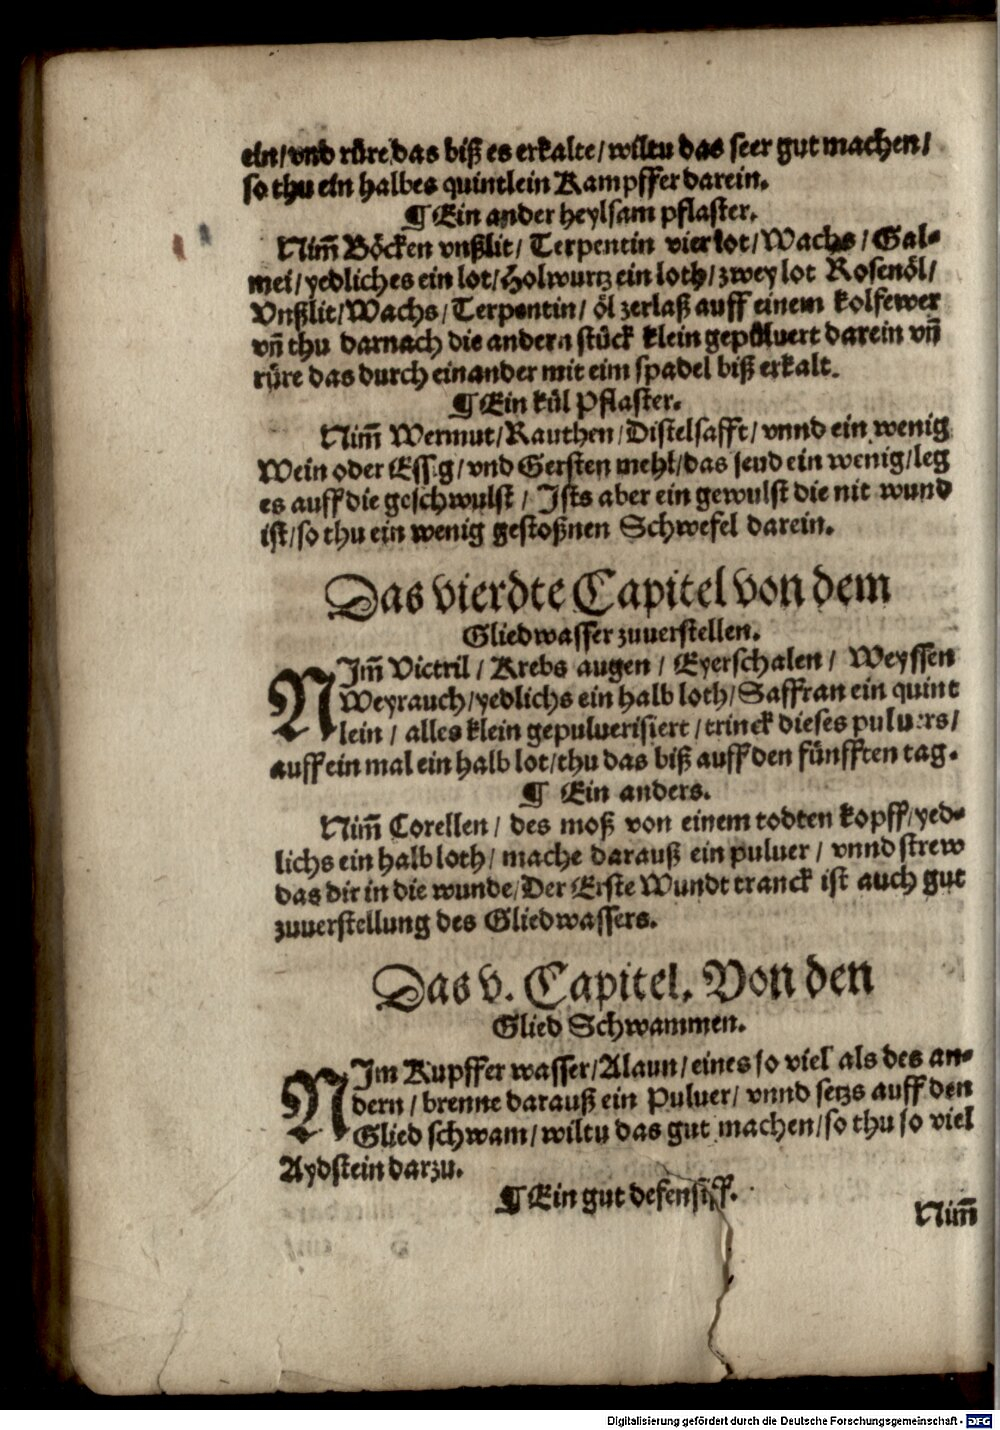 ein/vnd rüre das biß es erkalte/wiltu das seer gut machen/
so thu ein halbes quintlein Kampffer darein.
¶ Ein ander heylsam pflaster.
Nim̃ Böcken vnßlit/ Terpentin vier lot/Wachs/Gal-
mei/yedliches ein lot/Holwurtz ein loth/zwey lot Rosenöl/
Vnßlit/Wachs/Terpentin/ öl zerlaß auff einem kolfewer
vñ thu darnach die andern stück klein gepüluert darein vñ
rüre das durch einander mit eim spadel biß erkalt.
¶ Ein kül Pflaster.
Nim̃ Wermut/Rauthen/Distelsafft/vnnd ein wenig
Wein oder Essig/vnd Gersten mehl/das seud ein wenig/leg
es auff die geschwulst/ Ists aber ein gewulst die nit wund
ist/so thu ein wenig gestoßnen Schwefel darein.
Das vierdte Capitel von dem
Gliedwasser zuuerstellen.
NIm̃ Victril/ Krebs augen/ Eyerschalen/ Weyssen
Weyrauch/yedlichs ein halb loth/Saffran ein quint
lein/ alles klein gepuluerisiert/trinck dieses puluers/
auff ein mal ein halb lot/thu das biß auff den fünfften tag.
¶ Ein anders.
Nim̃ Corellen/ des moß von einem todten kopff/yed-
lichs ein halb loth/ mache darauß ein puluer/ vnnd strew
das dir in die wunde/Der Erste Wundtranck ist auch gut
zuuerstellung des Gliedwassers.
Das v. Capitel. Von den
Glied Schwammen.
NIm Kupffer wasser/Alaun/eines so viel als des an-
dern/ brenne darauß ein Puluer/ vnnd setzs auff den
Glied schwam/wiltu das gut machen/so thu so viel
Aydstein darzu.
¶ Ein gut defensiff.
Nim̃
Digitalisierung gefördert durch die Deutsche Forschungsgemeinschaft - DFG